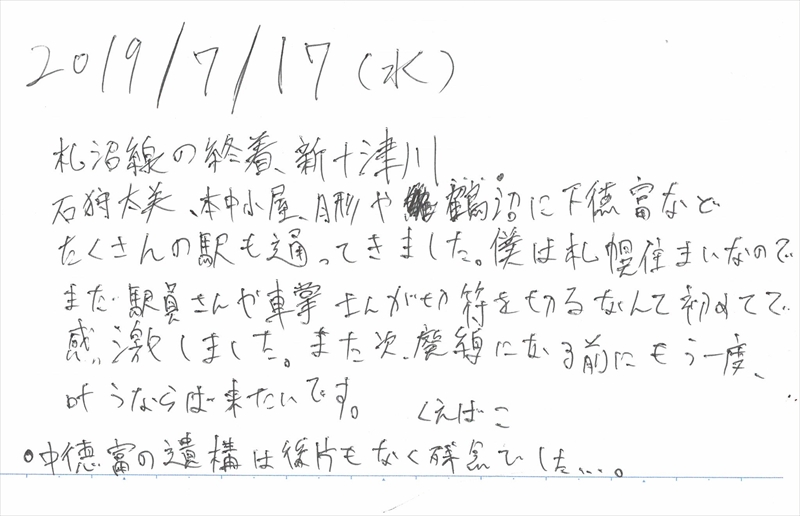 2019/7/17(水)
札沼線の終着、新十津川
石狩太美、本中小屋、月形や鶴沼に下徳富など
たくさんの駅も通ってきました。僕は札幌住まいなので
まだ駅員さんや車掌さんが切符を切るなんて初めてで
感激しました。また次、廃線になる前にもう一度、
叶うならば来たいです。 くえばこ
•中徳富の遺構は後片もなく残念でした...。